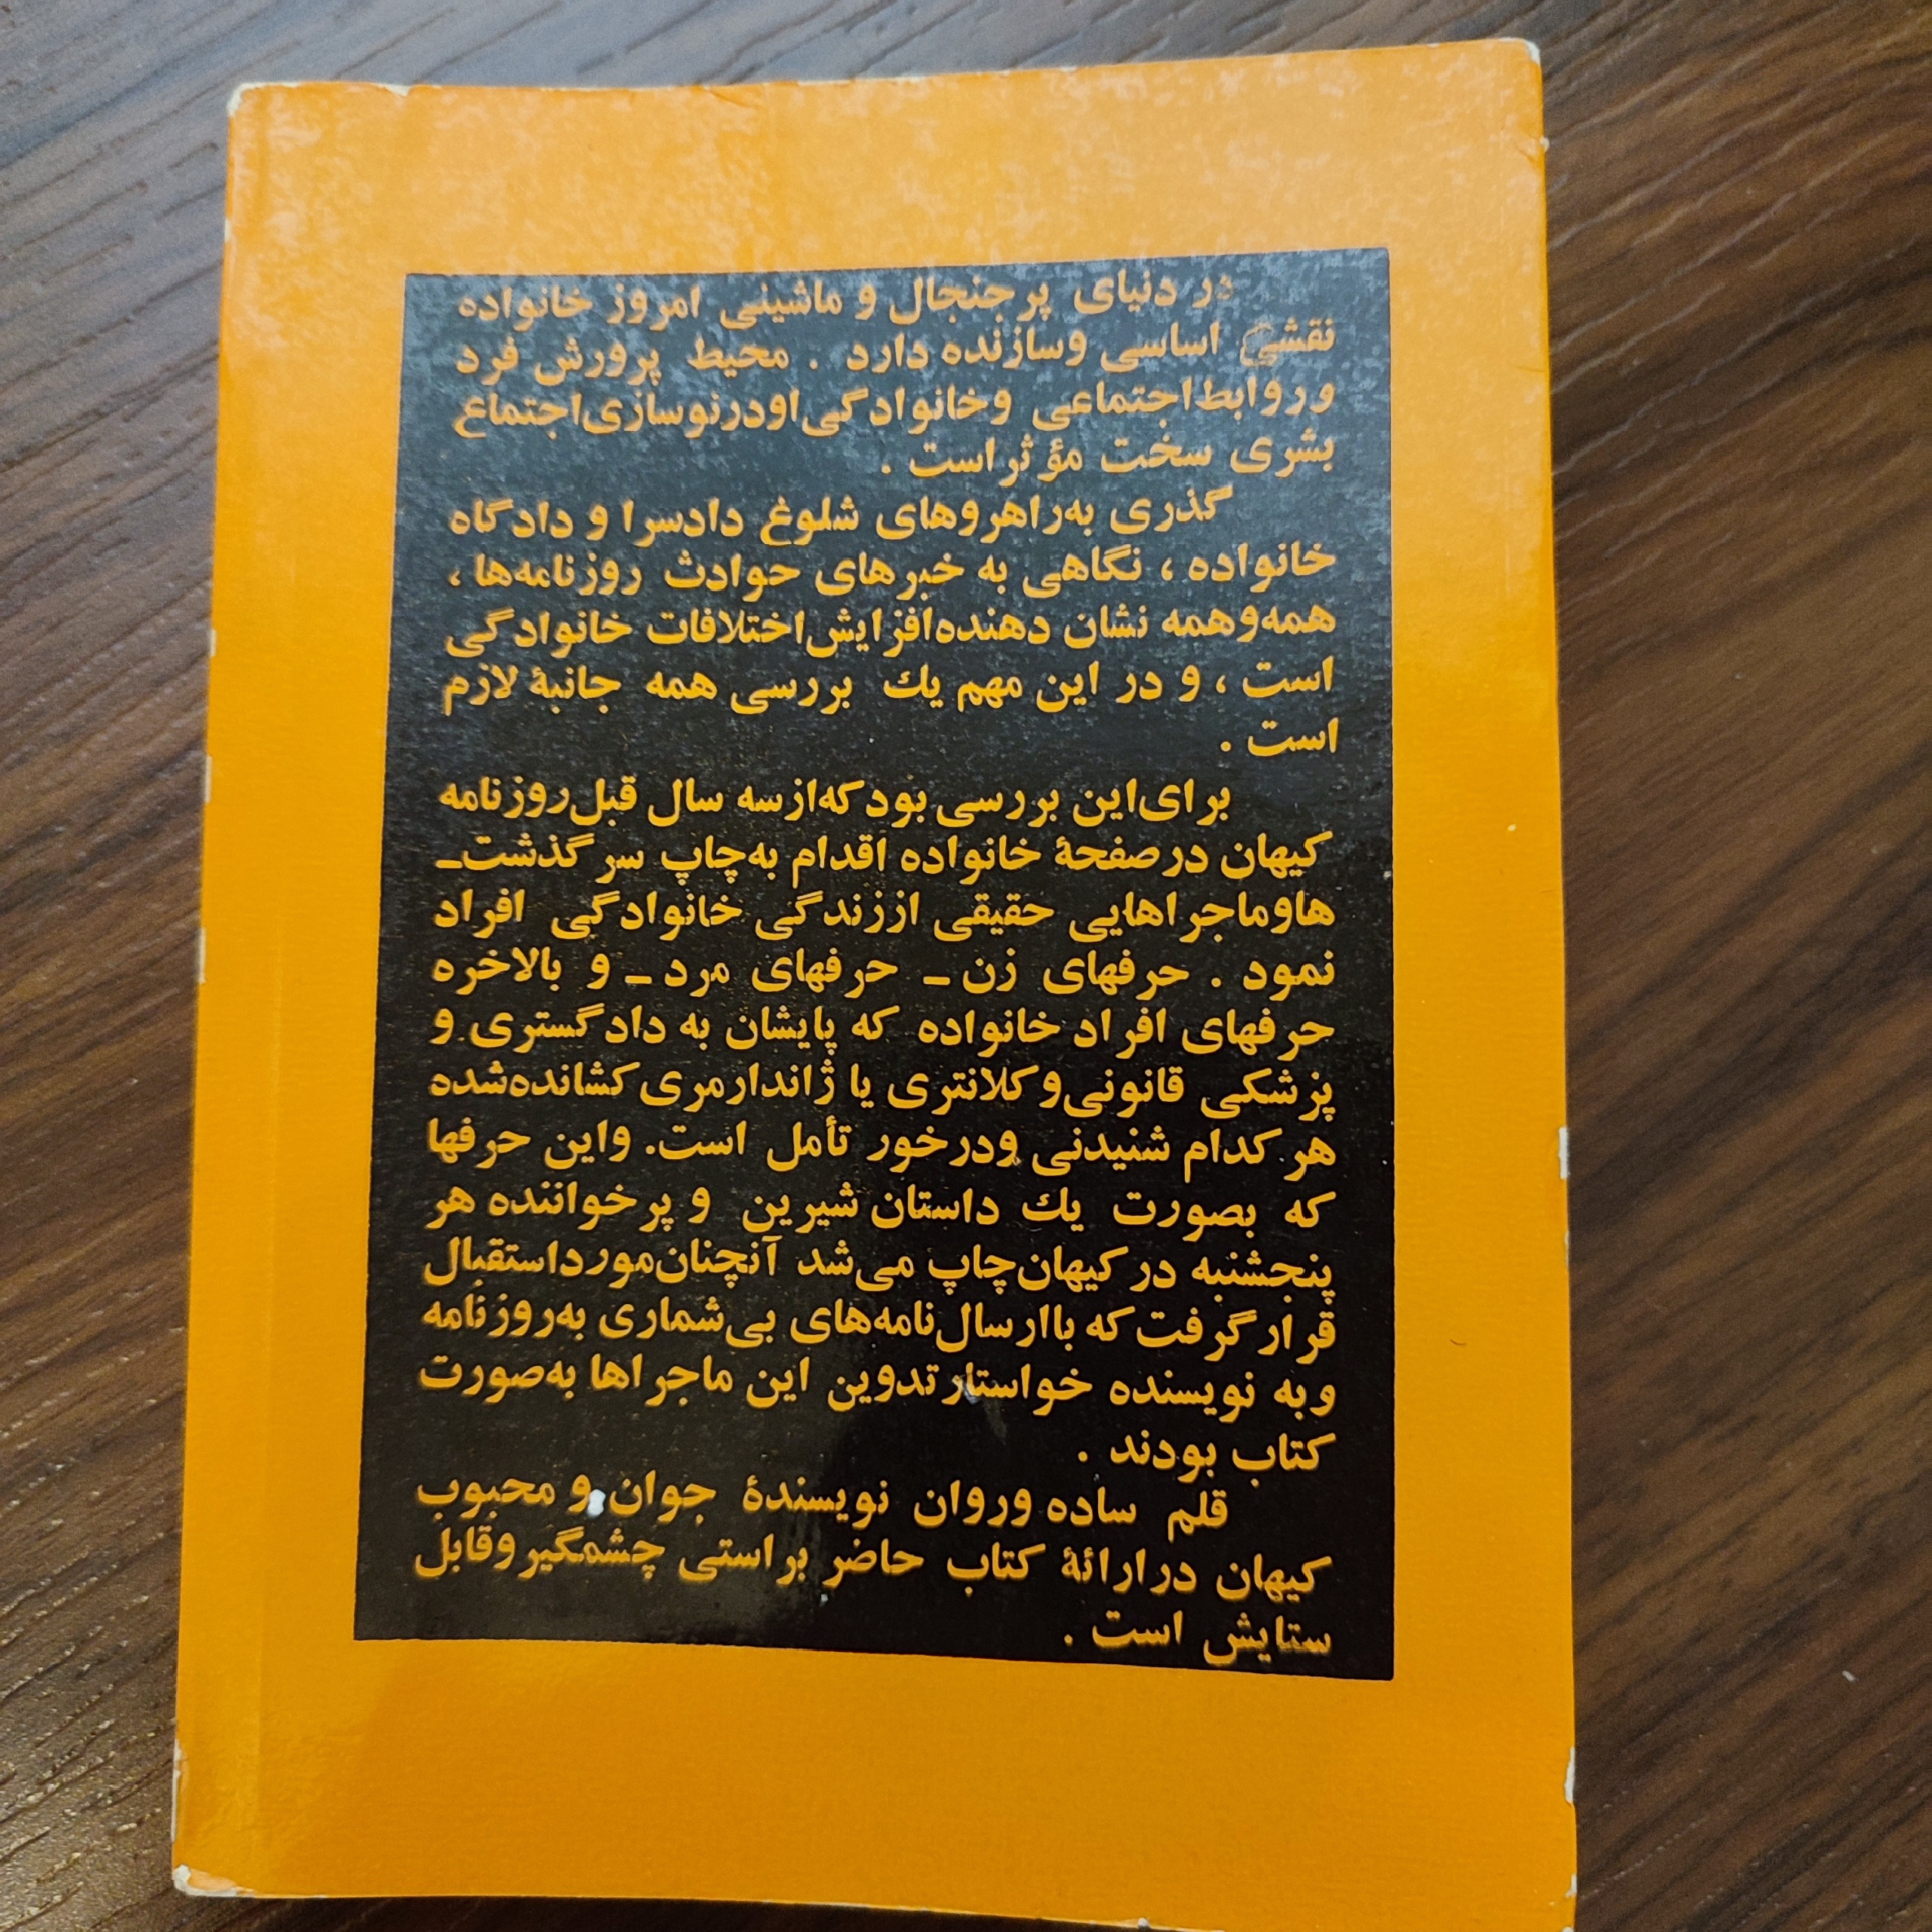 در دنیای پر جنجال و ماشینی امروز خانواده
نقشی اساسی وسازنده دارد . محیط پرورش فرد
وروابط اجتماعی وخانوادگی اودرنوسازی اجتماع
بشری سخت مؤثراست .
گذری به‌راهروهای شلوغ دادسرا و دادگاه
خانواده ، نگاهی به خبرهای حوادث روزنامه‌ها ،
همه‌وهمه نشان دهنده‌افزایش اختلافات خانوادگی
است ، و در این مهم یك بررسی همه جانبهٔ لازم
است .
برای‌این بررسی بود که‌ازسه سال قبل‌روزنامه
کیهان درصفحهٔ خانواده اقدام به‌چاپ سرگذشت-
هاوماجراهایی حقیقی اززندگی خانوادگی افراد
نمود . حرفهای زن - حرفهای مرد - و بالاخره
حرفهای افراد خانواده که پایشان به دادگستری و
پزشکی قانونی‌وکلانتری یا ژاندارمری کشانده‌شده
هرکدام شنیدنی ودرخور تأمل است. واین حرفها
که بصورت یك داستان شیرین و پرخواننده هر
پنجشنبه در کیهان‌چاپ می‌شد آنچنان‌مورداستقبال
قرارگرفت که باارسال‌نامه‌های بی‌شماری به‌روزنامه
وبه نویسنده خواستار تدوین این ماجراها به‌صورت
کتاب بودند .
قلم ساده وروان نویسندهٔ جوان و محبوب
کیهان درارائهٔ کتاب حاضر براستی چشمگیر وقابل
ستایش است .